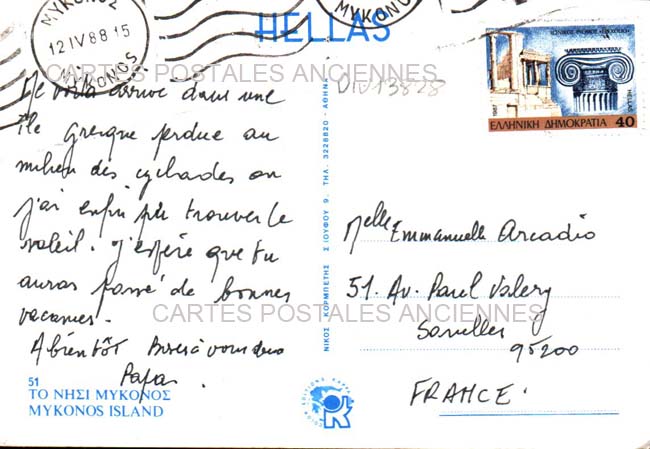 ΜΥΚΟΝΟΣ
12 IV 88 15
MYKONOS
MYKONOS
HELLAS
CARTES POSTALES ANCIENNES
DIV13828
Me voilà arrivé dans une
île grecque perdue au
milieu des cyclades où
j'ai enfin pu trouver le
soleil. J'espère que tu
auras passé de bonnes
vacances.
A bientôt Bises à vous deux
Papa.
51
ΤΟ ΝΗΣΙ ΜΥΚΟΝΟΣ
MYKONOS ISLAND
ΝΙΚΟΣ ΚΟΡΜΠΕΤΗΣ ΣΙΟΥΦΟΥ 9. ΤΗΛ. 3228820 - ΑΘΗΝΑ
ΙΩΝΙΚΟΣ ΡΥΘΜΟΣ
1987
HELLAS
ΕΛΛΗΝΙΚΗ ΔΗΜΟΚΡΑΤΙΑ 40
Melle Emmanuelle Arcadio
51. Av. Paul Valery
Sarcelles
95200
FRANCE.
CARTES POSTALES ANCIENNES